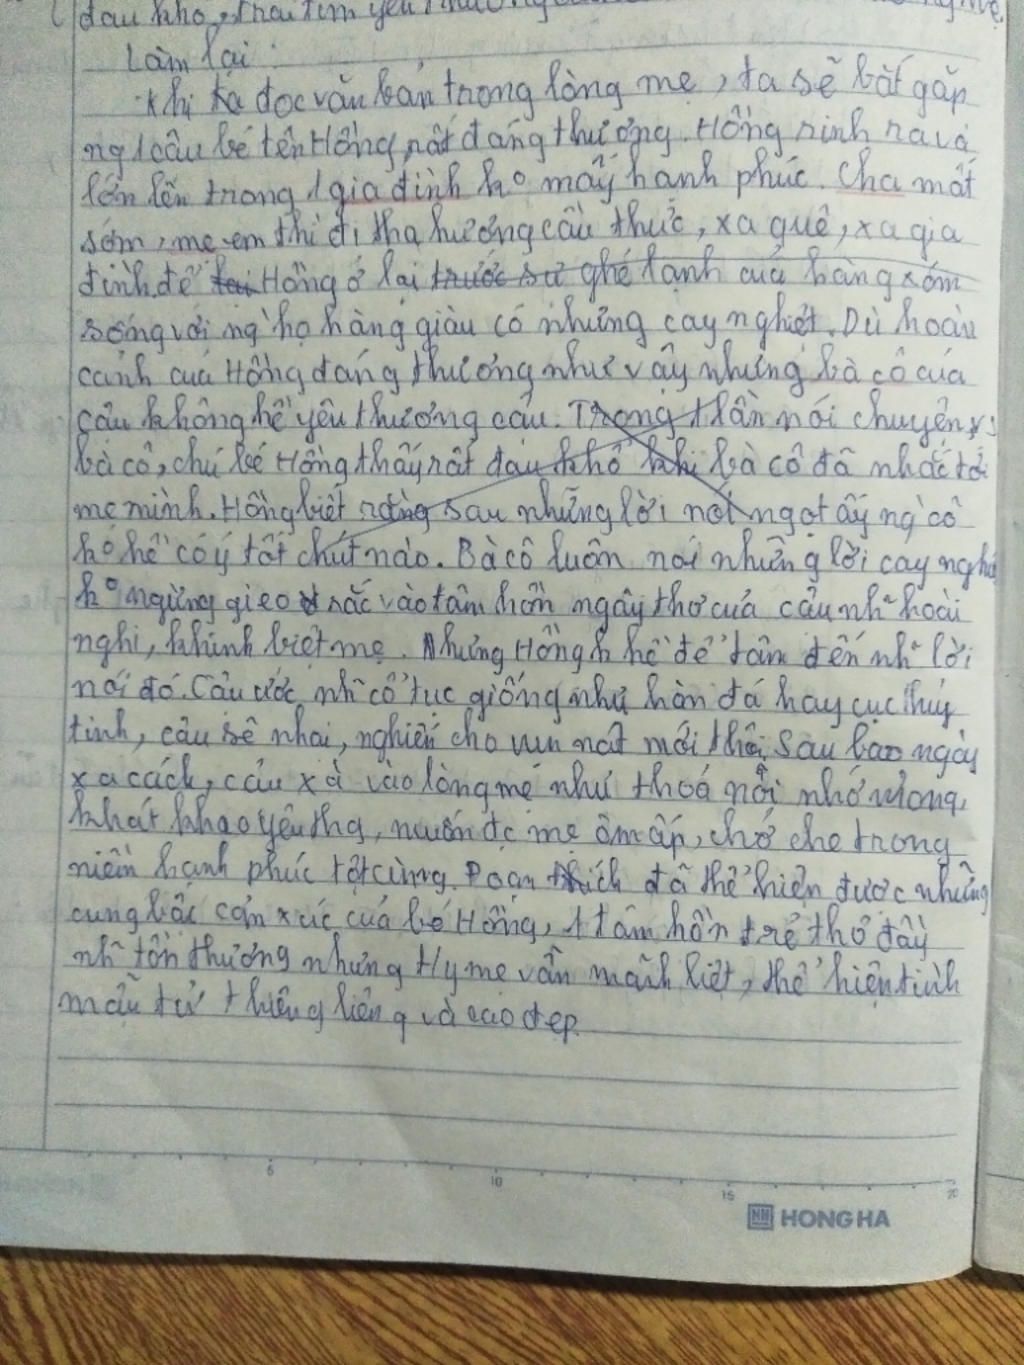 đau khổ, trái tim yêu thương
Làm lại :
Khi ta đọc văn bản trong lòng mẹ, ta sẽ bắt gặp
ng 1 cậu bé tên Hồng rất đáng thương. Hồng sinh ra và
lớn lên trong 1 gia đình ko mấy hạnh phúc. Cha mất
sớm, mẹ em thì đi tha hương cầu thực, xa quê, xa gia
đình để Hồng ở lại trước sự ghẻ lạnh của hàng xóm
sống với ng` họ hàng giàu có nhưng cay nghiệt. Dù hoàn
cảnh của Hồng đáng thương như vậy nhưng bà cô của
cậu không hề yêu thương cậu. Trong lần nói chuyện vs
bà cô, chú bé Hồng thấy rất đau khổ khi bà cô đã nhắc tới
mẹ mình. Hồng biết rằng sau những lời nói ngọt ấy ng` cô
ko hề có ý tốt chút nào. Bà cô luôn nói những lời cay nghiệ
ko ngừng gieo rắc vào tâm hồn ngây thơ của cậu nh~ hoài
nghi, khinh biệt mẹ. Nhưng Hồng k hề để tâm đến nh~ lời
nói đó. Cậu ước nh~ cổ tục giống như hòn đá hay cục thủy
tinh, cậu sẽ nhai, nghiến cho vụn nát mới thôi. Sau bao ngày
xa cách, cậu xà vào lòng mẹ như thoả nỗi nhớ mong,
khát khao yêu thg, muốn đc mẹ ôm ấp, chở che trong
niềm hạnh phúc tột cùng. Đoạn trích đã thể hiện được những
cung bậc cảm xúc của bé Hồng, 1 tâm hồn trẻ thơ đầy
nh~ tổn thương nhưng ty mẹ vẫn mãnh liệt, thể hiện tình
mẫu tử thiêng liêng và cao đẹp
5 10 15 20
HONG HA